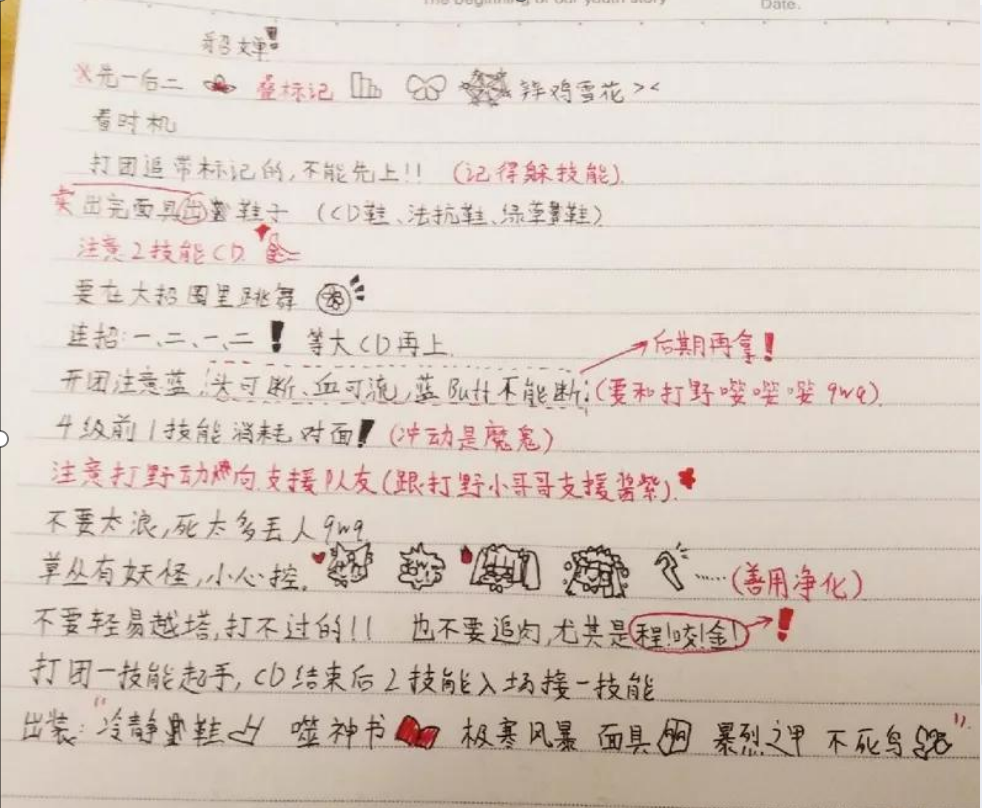 The beginning of our youth story Date.
貂蝉!
※先一后二 叠标记 鸡雪花><
看时机
打团追带标记的,不能先上!! (记得躲技能)
出完面具出鞋子 (CD鞋、法抗鞋、绿草鞋)
注意2技能CD
要在大招圈里跳舞
连招:一、二、一、二! 等大CD再上.
后期再拿!
开团注意蓝,头可断、血可流,蓝Buff不能断;(要和打野嘤嘤嘤qwq).
4级前1技能消耗对面!(冲动是魔鬼)
注意打野动向支援队友(跟打野小哥哥支援酱紫).
不要太浪,死太多丢人qwq
草丛有妖怪,小心控. ……(善用净化)
不要轻易越塔,打不过的!! 也不要追肉,尤其是程!咬!金! !
打团一技能起手,CD结束后2技能入场接一技能
出装:“冷静鞋 噬神书 极寒风暴 面具 暴烈之甲 不死鸟”.